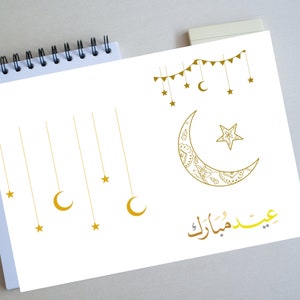 عيد مُبَارَك